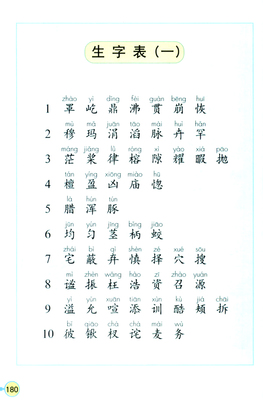 生字表(一)
zhào yì dǐng fèi guàn bēng huī
1 罩 屹 鼎 沸 贯 崩 恢
mù mǎ juān tāo mài huì hǎn
2 穆 玛 涓 滔 脉 卉 罕
máng jiǎng lǜ róng xì yào xiá pāo
3 茫 桨 律 榕 隙 耀 暇 抛
tán yíng xiōng miào hū
4 檀 盈 凶 庙 惚
5 腊 浑 豚
jūn yún jīng bǐng jiāo
6 均 匀 茎 柄 蛟
zhái bì qì shèn zé xué sōu
7 宅 蔽 弃 慎 择 穴 搜
mì zhèn wǎng hào zī zhào yuán
8 谧 振 枉 浩 资 召 源
yì yǔn xuān tiān xùn kù jiá chāi
9 溢 允 喧 添 训 酷 颊 拆
bǐ qiāo chà chà mài wù
10 彼 锹 杈 诧 麦 务
180